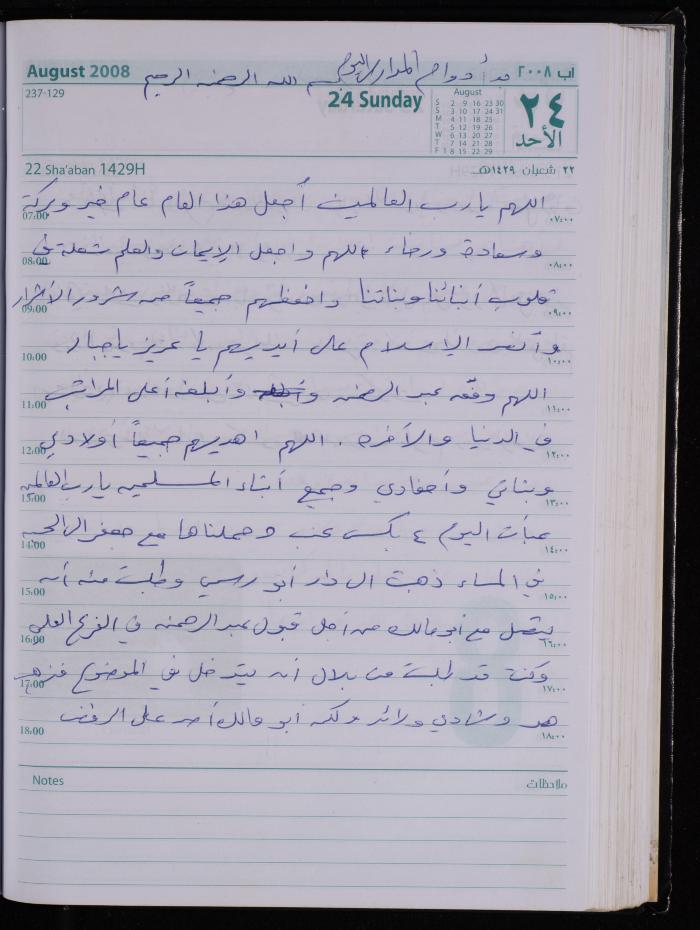 August 2008
آب ٢٠٠٨
بدأ دوام المدارس اليوم
بسم الله الرحمن الرحيم
237-129
24 Sunday
August
S 2 9 16 23 30
S 3 10 17 24 31
M 4 11 18 25
T 5 12 19 26
W 6 13 20 27
T 7 14 21 28
F 1 8 15 22 29
٢٤
الأحد
22 Sha'aban 1429H
٢٢ شعبان ١٤٢٩هـ
اللهم يا رب العالمين أجعل هذا العام عام خير وبركة
07:00 ٠٧:٠٠
وسعادة ورخاء اللهم واجعل الإيمان والعلم شعلة في
08:00 ٠٨:٠٠
قلوب أبنائنا وبناتنا واحفظهم جميعاً من شرور الأشرار
09:00 ٠٩:٠٠
وأنصر الإسلام على أيديهم يا عزيز يا جبار
10:00 ١٠:٠٠
اللهم وفقه عبد الرحمن وأبلغه أعلى المراتب
11:00 ١١:٠٠
في الدنيا والآخره . اللهم اهديهم جميعاً أولادي
12:00 ١٢:٠٠
وبناتي وأحفادي وجميع أبناء المسلمين يا رب العالمين
13:00 ١٣:٠٠
عبأت اليوم ٤ بكس عنب وحملناها مع جعفر الى
14:00 ١٤:٠٠
في المساء ذهبت الى دار أبو رسمي وطلبت منه أن
15:00 ١٥:٠٠
يتصل مع أبو مالك من أجل قبول عبد الرحمن في الفرع العلمي
16:00 ١٦:٠٠
وكنت قد طلبت من بلال أن يتدخل في الموضوع فذهب
17:00 ١٧:٠٠
هو وشادي ورائد ولكن أبو مالك أصر على الرفض
18:00 ١٨:٠٠
Notes
ملاحظات